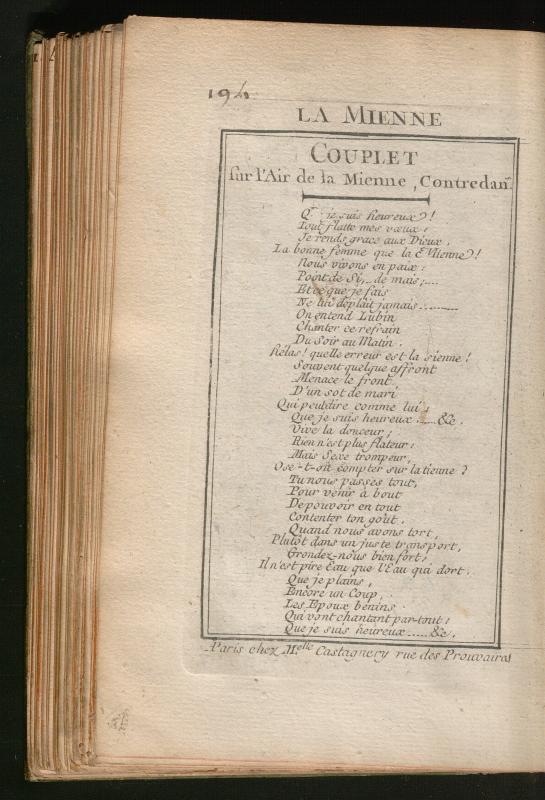 194
LA MIENNE
COUPLET
sur l'Air de la Mienne, Contredan.
Q. je suis heureux!
Tout flatte mes vœux:
Je rends grace aux Dieux.
La bonne femme que la Mienne!
Nous vivons en paix:
Point de Si, de mais;....
Et ce que je fais
Ne lui déplait jamais..........
On entend Lubin
Chanter ce refrain
Du Soir au Matin.
Hélas! quelle erreur est la sienne!
Souvent quelque affront
Menace le front
D'un sot de mari
Qui peut dire comme lui,
Que je suis heureux......&c.
Vive la douceur;
Rien n'est plus flateur:
Mais Sexe trompeur,
Ose-t-on compter sur la tienne?
Tu nous passes tout,
Pour venir à bout
De pouvoir en tout
Contenter ton goût.
Quand nous avons tort,
Plutôt dans un juste transport,
Grondez-nous bien fort;
Il n'est pire Eau que l'Eau qui dort.
Que je plains,
Encore un Coup,
Les Epoux benins
Qui vont chantant par-tout:
Que je suis heureux.....&c.
Paris chez Melle Castagnery rue des Prouvaires